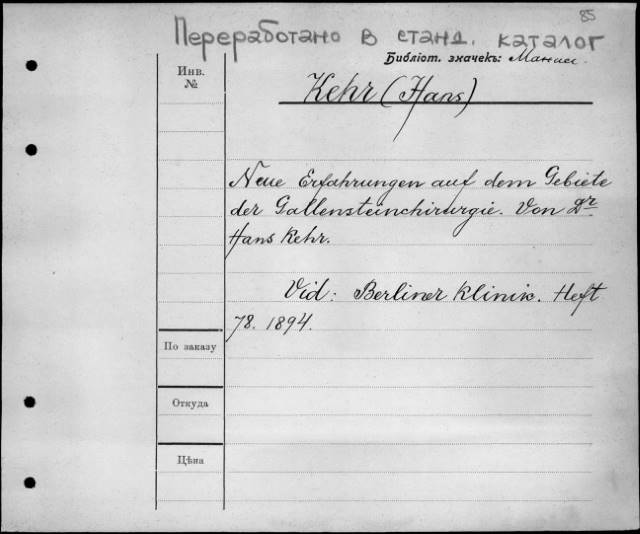 85
Переработано в станд. каталог
Библіот. значекъ:
Инв.
№
Kehr (Hans)
Neue Erfahrungen auf dem Gebiete
der Gallensteinchirurgie. Von Dr
Hans Kehr.
Vid: Berliner Klinik. Heft
78. 1894.
По заказу
Откуда
Цѣна